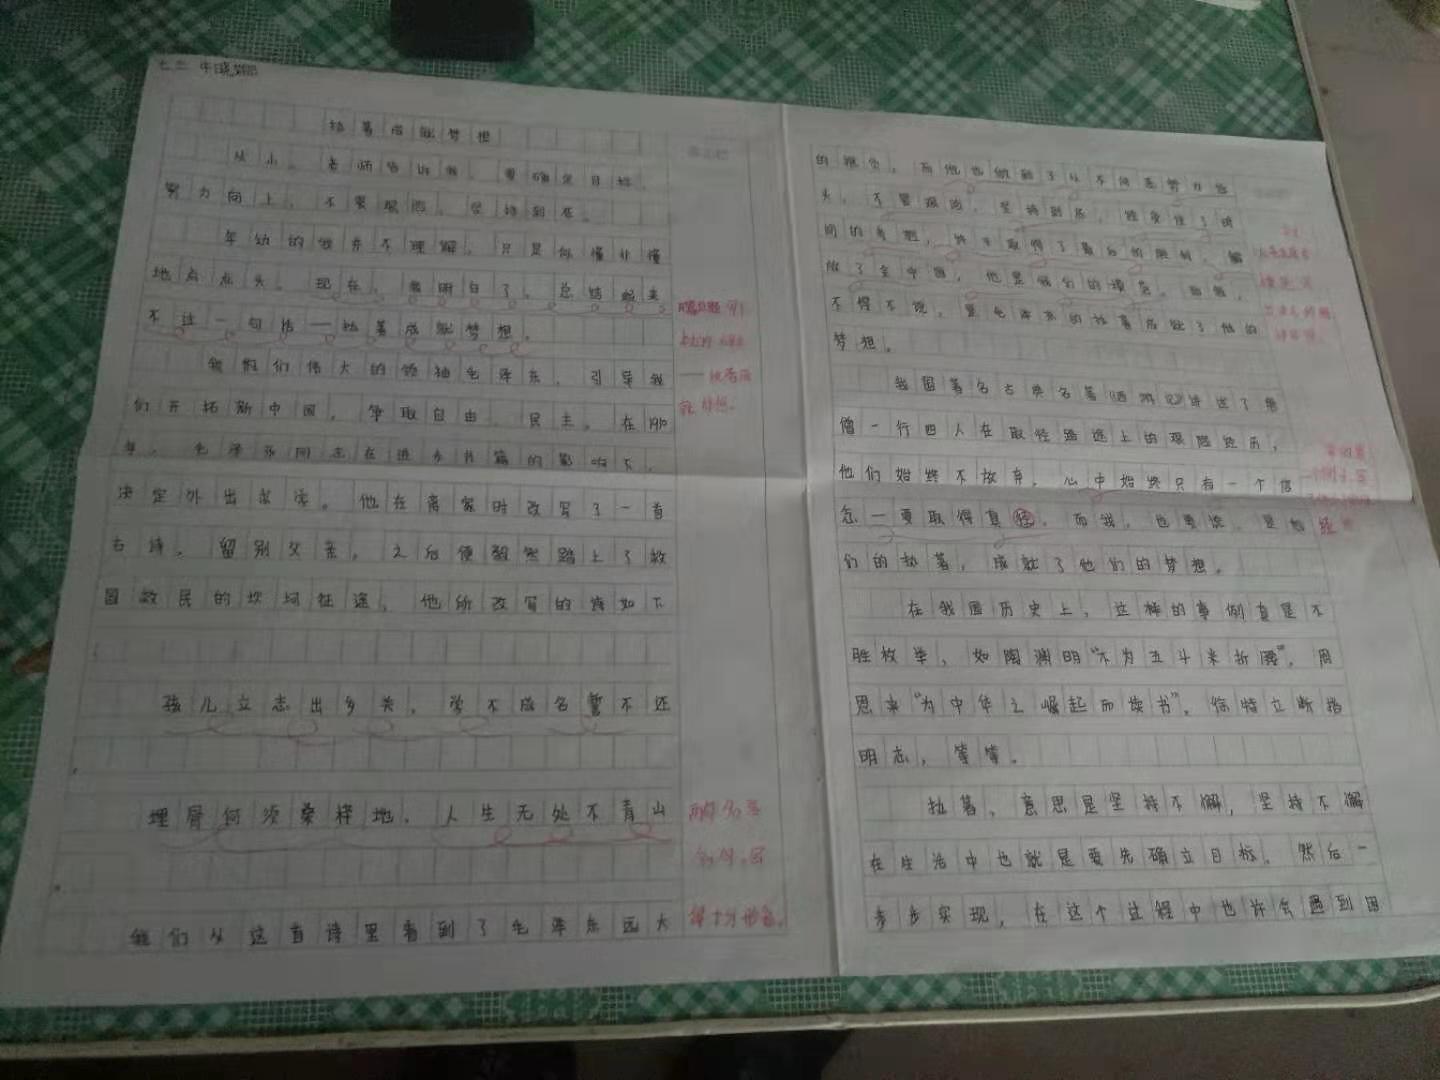 七二
执着成就梦想
从小。老师告诉我。要确定目标，
努力向上，不畏艰险，坚持到底。
年幼的我亦不理解，只是似懂非懂
地点点头。现在，我明白了。总结起来
不过一句话——执着成就梦想。
我们伟大的领袖毛泽东，引导我
们开拓新中国，争取自由、民主。在1910
年，毛泽东同志在进步书籍的影响下，
决定外出求学。他在离家时改写了一首
古诗，留别父亲，之后便毅然踏上了救
国救民的坎坷征途，他所改写的诗如下
：
孩儿立志出乡关，学不成名誓不还
，
埋骨何须桑梓地，人生无处不青山
。
我们从这首诗里看到了毛泽东远大
两句名言
得十分
的抱负，而他也做到了从不间断努力
头，不畏艰险，坚持到底，
间的考验，终于取得了最后的胜利，解
放了全中国，他是我们的
不得不说，是毛泽东的执着成就了他的
梦想。
我国著名古典名著《西游记》讲述了唐
僧一行四人在取经路途上的艰险经历，
他们始终不放弃，心中始终只有一个信
念—要取得真经，而我，也要说，是他
们的执着，成就了他们的梦想。
经
在我国历史上，这样的事例真是不
胜枚举，如陶渊明“不为五斗米折腰”，周
恩来“为中华之崛起而读书”，徐特立断指
明志，等等。
执着，意思是坚持不懈，坚持不懈
在生活中也就是要先确立目标，然后一
步步实现，在这个过程中也许会遇到困